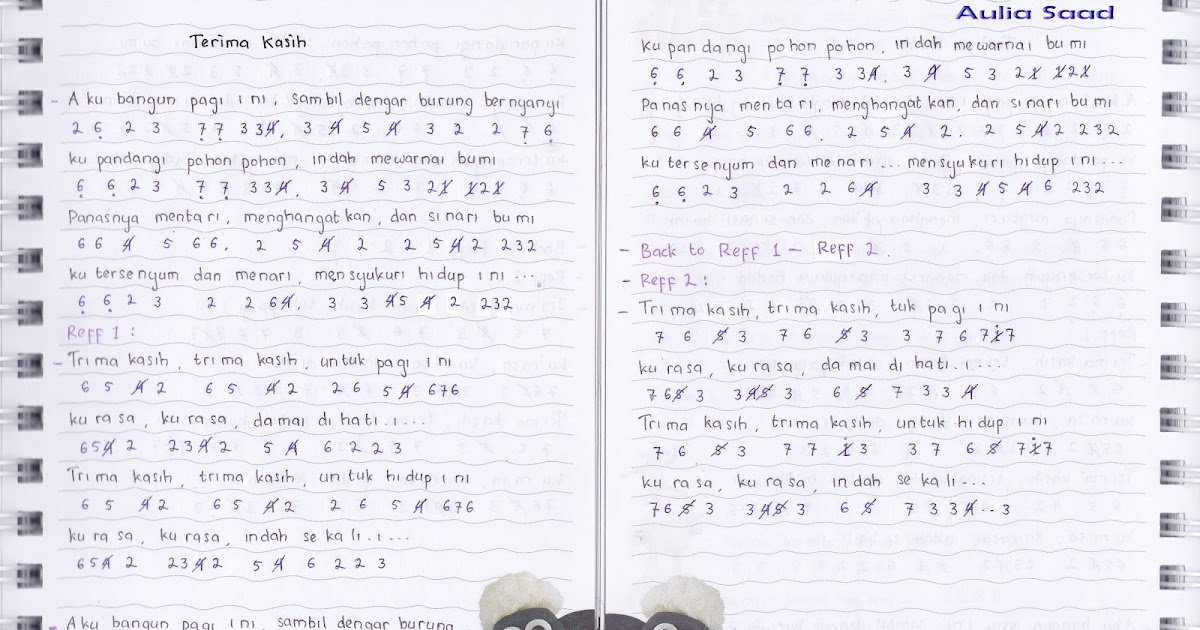 Terima Kasih
- Aku bangun pagi ini, sambil dengar burung bernyanyi
2 6̣ 2 3 7̣ 7̣ 3 3 4̸, 3 4̸ 5 4̸ 3 2 2 7̣ 6̣
ku pandangi pohon pohon, indah mewarnai bumi
6̣ 6̣ 2 3 7̣ 7̣ 3 3 4̸, 3 4̸ 5 3 2 1̸ 1̸ 2 1̸
Panasnya mentari, menghangatkan, dan sinari bumi
6 6 4̸ 5 6 6, 2 5 4̸ 2 2 5 4̸ 2 232
ku tersenyum dan menari, mensyukuri hidup ini ...
6̣ 6̣ 2 3 2 2 6 4̸, 3 3 4̸ 5 4̸ 2 232
Reff 1 :
- Trima kasih, trima kasih, untuk pagi ini
6 5 4̸ 2 6 5 4̸ 2 2 6 5 4̸ 676
ku rasa, ku rasa, damai di hati.i....
6 5 4̸ 2 2 3 4̸ 2 5 4̸ 6 2 2 3
Trima kasih, trima kasih, untuk hidup ini
6 5 4̸ 2 6 5 4̸ 2 2 6 5 4̸ 676
ku rasa, ku rasa, indah sekali.i....
6 5 4̸ 2 2 3 4̸ 2 5 4̸ 6 2 2 3
- Aku bangun pagi ini, sambil dengar burung
Aulia Saad
ku pandangi pohon pohon, indah mewarnai bumi
6̣ 6̣ 2 3 7̣ 7̣ 3 3 4̸, 3 4̸ 5 3 2 1̸ 1̸ 2 1̸
Panasnya mentari, menghangatkan, dan sinari bumi
6 6 4̸ 5 6 6, 2 5 4̸ 2, 2 5 4̸ 2 232
ku tersenyum dan menari ... mensyukuri hidup ini ...
6̣ 6̣ 2 3 2 2 6 4̸ 3 3 4̸ 5 4̸ 6 232
- Back to Reff 1 - Reff 2.
- Reff 2 :
- Trima kasih, trima kasih, tuk pagi ini
7 6 5̸ 3 7 6 5̸ 3 3 7 6 7 1̸̇ 7
ku rasa, ku rasa, damai di hati.i....
7 6 5̸ 3 3 4̸ 5̸ 3 6 5̸ 7 3 3 4̸
Trima kasih, trima kasih, untuk hidup ini
7 6 5̸ 3 7 7 1̸̇ 3 3 7 6 5̸ 7 1̸̇ 7
ku rasa, ku rasa, indah sekali.....
7 6 5̸ 3 3 4̸ 5̸ 3 6 5̸ 7 3 3 4̸ .. 3